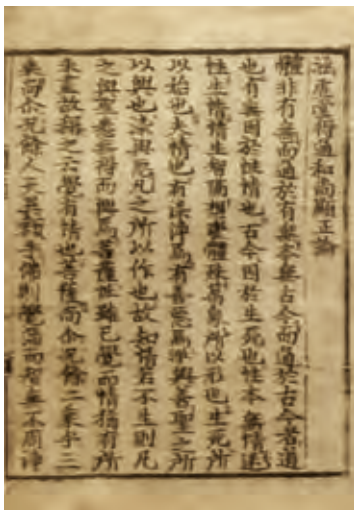 涵虛堂得通和尙顯正論
體非有無而通於有無本無古今而通於古今者道
也有無因於性情也古今因於生死也性本無情迷
性生情情生智隔想變體殊萬象所以形也生死所
以始也夫情也有染淨焉有善惡焉淨與善聖之所
以興也染與惡凡之所以作也故知情若不生則凡
之與聖悉無得而興焉菩薩性雖已覺而情猶有所
未盡故稱之云覺有情也菩薩尙尒況餘二乘乎二
乘尙尒況餘人天異類乎佛則覺滿而智無不周淨